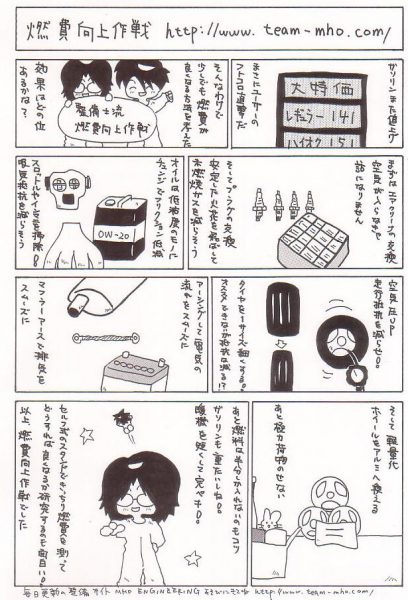 燃費向上作戦 http://www.team-mho.com/
ガソリンまた値上げ
大特価
レギュラー 141
ハイオク 151
まさにユーザーの
フトコロ直撃だ
そんなわけで
少しでも燃費が
良くなる方法を考えた
整備士流
燃費向上作戦
効果はどの位
あるかな?
まずはエアクリーナの交換
空気が入らなきゃ
話になりません
そしてプラグの交換
安定した火花を飛ばして
未燃焼ガスを減らそう
オイルは低粘度のモノに
チェンジでフリクション低減
0W-20
スロットルやIG系を掃除し
吸気抵抗を減らそう
空気圧UP
走行抵抗を減らせ!!
タイヤを1サイズ細くする。
オススメできないが抵抗は減る!?
アーシングして電気の
流れをスムーズに
マフラーアースで排気を
スムーズに
そして軽量化
ホイールをアルミへ換える
あと極力荷物のせない
あと燃料は半分しか入れないのもコツ
ガソリンも重たいしね!!
暖機を短くして完ペキ!!
セルフ式のスタンドできっちり燃費を測って
どうすれば良くなるか研究するのも面白い!!
以上、燃費向上作戦でした
毎日更新の整備サイト MHO ENGINEERING あそびにきてネ http://www.team-mho.com/